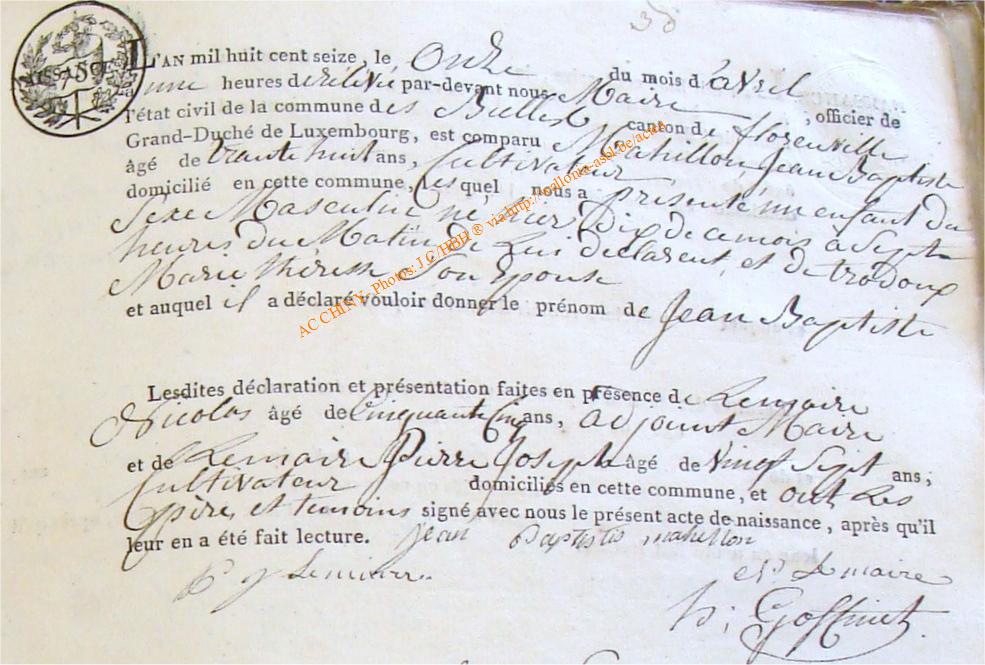 38
NAISSANCE
L'AN mil huit cent seize, le Onze du mois d'avril
a une heures de relevée par-devant nous Maire, officier de
l'état civil de la commune des Bulles canton de florenville
Grand-Duché de Luxembourg, est comparu Mahillon Jean Baptiste
âgé de trante huit ans, Cultivateur
domicilié en cette commune, Les quel nous a présenté un enfant du
Sexe Masculin né hier dix de ce mois a Sept
heures du Matin de Lui déclarent, et de trodoux
Marie thérese Son Epouse
et auquel il a déclaré vouloir donner le prénom de Jean Baptiste
Lesdites déclaration et présentation faites en présence de Lemaire
Nicolas âgé de Cinquante Cinq ans, adjoint Maire
et de Lemaire Pierre Joseph âgé de vingt Sept ans,
Cultivateur domiciliés en cette commune, et ont Les
père, et temoins signé avec nous le présent acte de naissance, après qu'il
leur en a été fait lecture. Jean Baptiste mahillon
P J Lemaire
Lemaire
Goffinet
AC CHINY- Photos: J.C/HBH ® via http://wallonia-asbl.be/actes